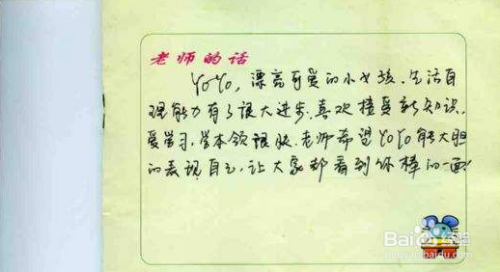 老师的话
YoYo，漂亮可爱的小女孩．生活自
理能力有了很大进步．喜欢接受新知识．
爱学习，学本领很快．老师希望YoYo能大胆
的表现自己，让大家都看到你棒的一面！
Baidu经验
jingyan.baidu.com